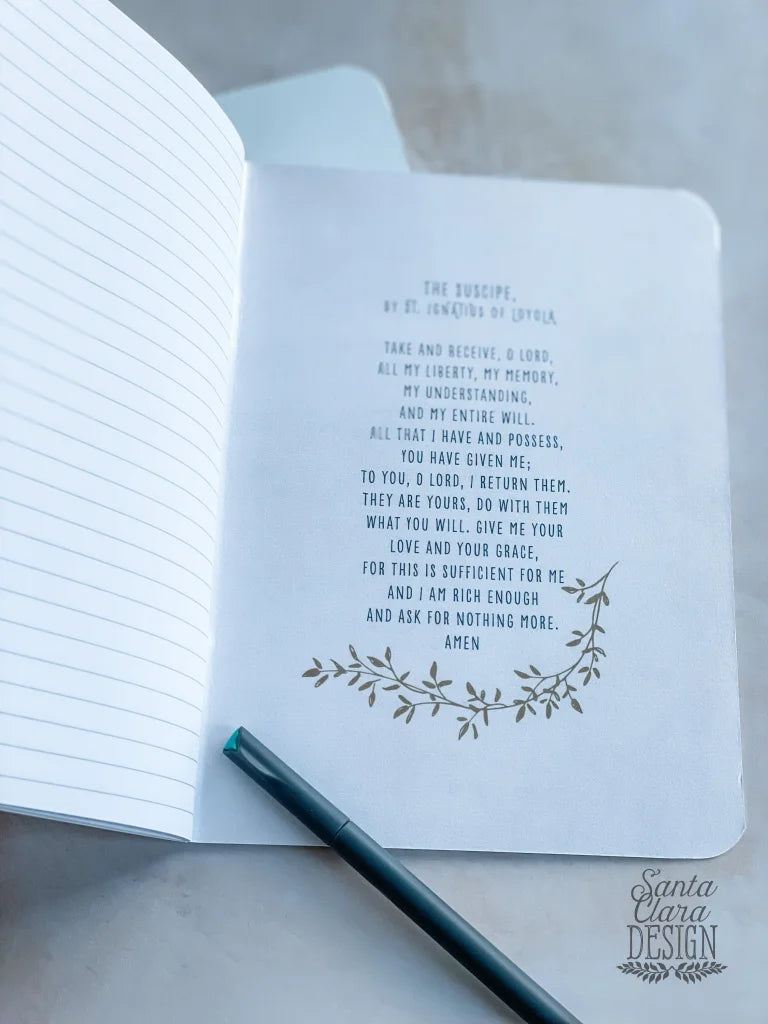 THE SUSCIPE,
BY ST. IGNATIUS OF LOYOLA
TAKE AND RECEIVE, O LORD,
ALL MY LIBERTY, MY MEMORY,
MY UNDERSTANDING,
AND MY ENTIRE WILL.
ALL THAT I HAVE AND POSSESS,
YOU HAVE GIVEN ME;
TO YOU, O LORD, I RETURN THEM.
THEY ARE YOURS, DO WITH THEM
WHAT YOU WILL. GIVE ME YOUR
LOVE AND YOUR GRACE,
FOR THIS IS SUFFICIENT FOR ME
AND I AM RICH ENOUGH
AND ASK FOR NOTHING MORE.
AMEN
Santa
Clara
DESIGN